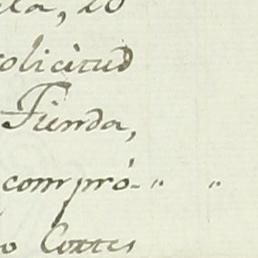 la, lo
olicitud
Tienda,
compró- " "
o Cortes